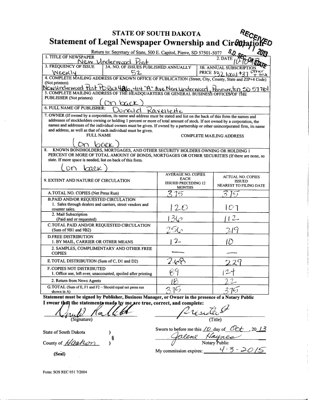 STATE OF SOUTH DAKOTA
Statement of Legal Newspaper Ownership and Circulation
RECEIVED
Return to: Secretary of State, 500 E. Capitol, Pierre, SD 57501-5077
1. TITLE OF NEWSPAPER
New Underwood Post
2. DATE
3. FREQUENCY OF ISSUE
Weekly
3A. NO. OF ISSUES PUBLISHED ANNUALLY
52
3B. ANNUAL SUBSCRIPTION
PRICE
4. COMPLETE MAILING ADDRESS OF KNOWN OFFICE OF PUBLICATION (Street, City, County, State and ZIP+4 Code)
(Not printers)
New Underwood Post PO Box 426, "A" Ave New Underwood, Pennington, SD 57761
5. COMPLETE MAILING ADDRESS OF THE HEADQUARTERS OR GENERAL BUSINESS OFFICES OF THE
PUBLISHER (Not printers)
(on back)
6. FULL NAME OF PUBLISHER:
Donald Ravellette
7. OWNER (If owned by a corporation, its name and address must be stated and list on the back of this form the names and
addresses of stockholders owning or holding 1 percent or more of total amount of stock. If not owned by a corporation, the
names and addresses of the individual owners must be given. If owned by a partnership or other unincorporated firm, its name
and address, as well as that of each individual must be given.
FULL NAME
COMPLETE MAILING ADDRESS
(on back)
8. KNOWN BONDHOLDERS, MORTGAGES, AND OTHER SECURITY HOLDERS OWNING OR HOLDING 1
PERCENT OR MORE OF TOTAL AMOUNT OF BONDS, MORTGAGES OR OTHER SECURITIES (If there are none, so
state. If more space is needed, list on back of this form.
(on back)
9. EXTENT AND NATURE OF CIRCULATION
AVERAGE NO. COPIES
EACH
ISSUES PRECEDING 12
MONTHS
ACTUAL NO. COPIES
ISSUED
NEAREST TO FILING DATE
A. TOTAL NO. COPIES (Net Press Run)
375
375
B. PAID AND/OR REQUESTED CIRCULATION
1. Sales through dealers and carriers, street vendors and
counter sales.
120
107
2. Mail Subscription
(Paid and or requested)
136
112
C. TOTAL PAID AND/OR REQUESTED CIRCULATION
(Sum of 9B1 and 9B2)
256
219
D. FREE DISTRIBUTION
1. BY MAIL, CARRIER OR OTHER MEANS
12
10
2. SAMPLES, COMPLIMENTARY AND OTHER FREE
COPIES
E. TOTAL DISTRIBUTION (Sum of C, D1 and D2)
268
229
F. COPIES NOT DISTRIBUTED
1. Office use, left over, unaccounted, spoiled after printing
89
124
2. Return from News Agents
18
22
G. TOTAL (Sum of E, F1 and F2 - Should equal net press run
shown in A)
375
375
Statement must be signed by Publisher, Business Manager, or Owner in the presence of a Notary Public
I swear that the statements made by me are true, correct, and complete:
(Signature)
President
(Title)
State of South Dakota )
§
County of Haakon )
(Seal)
Sworn to before me this 10 day of Oct, 2013
Notary Public
My commission expires: 4-3-2015
Form: SOS REC 051 7/2004